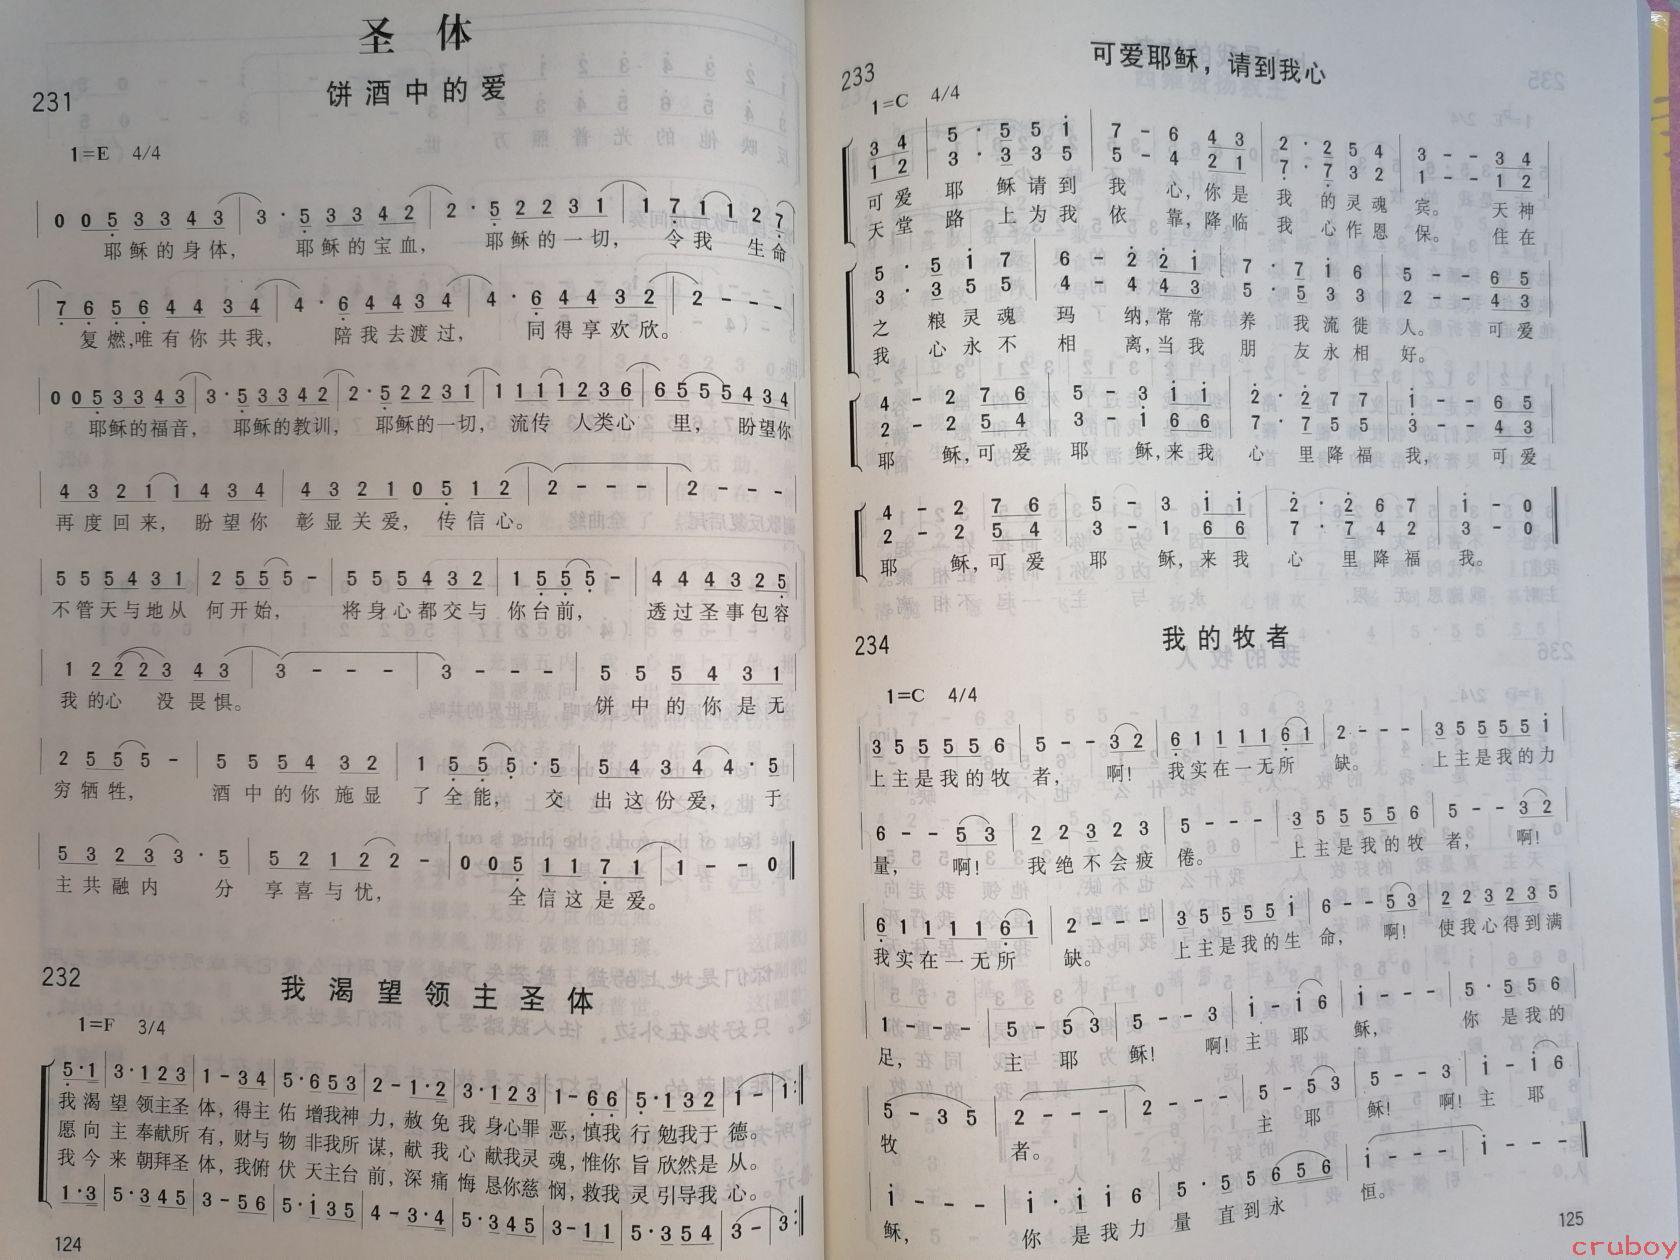 圣 体
231 饼酒中的爱
1=E 4/4
0 0 5 3 3 4 3 | 3 · 5 3 3 4 2 | 2 · 5 2 2 3 1 | 1 7 1 1 2 7
耶稣的身体, 耶稣的宝血, 耶稣的一切, 令我 生命
7 6 5 6 4 4 3 4 | 4 · 6 4 4 3 4 | 4 · 6 4 4 3 2 | 2 - - -
复燃,唯有你共我, 陪我去渡过, 同得享欢欣。
0 0 5 3 3 4 3 | 3 · 5 3 3 4 2 | 2 · 5 2 2 3 1 | 1 1 1 1 2 3 6 | 6 5 5 5 5 4 3 4
耶稣的福音, 耶稣的教训, 耶稣的一切, 流传 人类心 里, 盼望你
4 3 2 1 1 4 3 4 | 4 3 2 1 0 5 1 2 | 2 - - - | 2 - - -
再度回来, 盼望你 彰显关爱, 传信心。
5 5 5 4 3 1 | 2 5 5 5 - | 5 5 5 4 3 2 | 1 5 5 5 - | 4 4 4 3 2 5
不管天与地从 何开始, 将身心都交与 你台前, 透过圣事包容
1 2 2 2 3 4 3 | 3 - - - | 3 - - - | 5 5 5 4 3 1
我的心 没畏惧。 饼中的你是无
2 5 5 5 - | 5 5 5 4 3 2 | 1 5 5 5 · 5 | 5 4 3 4 4 · 5
穷牺牲, 酒中的你施显 了全能, 交 出这份爱, 于
5 3 2 3 3 · 5 | 5 2 1 2 2 - | 0 0 5 1 1 7 1 | 1 - - 0
主共融内 分 享喜与忧, 全信这是爱。
232 我渴望领主圣体
1=F 3/4
5·1 | 3·1 2 3 | 1 - 3 4 | 5·6 5 3 | 2 - 1·2 | 3·1 2 3 | 1 - 6 6 | 5·1 3 2 | 1 - 1
我渴望领主圣体,得主佑增我神力,赦免我身心罪恶,慎我行勉我于德。
愿向主奉献所有,财与物非我所谋,献我心献我灵魂,惟你旨欣然是从。
我今来朝拜圣体,我俯伏天主台前,深痛悔恳你慈悯,救我灵引导我心。
1·3 | 5·3 4 5 | 3 - 5 6 | 5·i 3 5 | 4 - 3·4 | 5·3 4 5 | 3 - 1 1 | 5·3 5 4 | 3 - 3
124
233 可爱耶稣,请到我心
1=C 4/4
3 4 | 5 · 5 5 i | 7 - 6 4 3 | 2 · 2 5 4 | 3 - - 3 4
1 2 | 3 · 3 3 5 | 5 - 4 2 1 | 7 · 7 3 2 | 1 - - 1 2
可爱 耶 稣请到 我 心,你是 我 的灵魂 宾。 天神
天堂 路 上为我 依 靠,降临 我 心作恩 保。 住在
5 · 5 i 7 | 6 - 2 2 i | 7 · 7 i 6 | 5 - - 6 5
3 · 3 5 5 | 4 - 4 4 3 | 5 · 5 3 3 | 2 - - 4 3
之 粮灵魂 玛 纳,常常 养 我流徙 人。 可爱
我 心永不 相 离,当我 朋 友永相 好。
4 - 2 7 6 | 5 - 3 i i | 2 · 2 7 7 | i - - 6 5
2 - 2 5 4 | 3 - i 6 6 | 7 · 7 5 5 | 3 - - 4 3
耶 稣,可爱 耶 稣,来我 心 里降福 我, 可爱
4 - 2 7 6 | 5 - 3 i i | 2 · 2 6 7 | i - 0
2 - 2 5 4 | 3 - 1 6 6 | 7 · 7 4 2 | 3 - 0
耶 稣,可爱 耶 稣,来我 心 里降福 我。
234 我的牧者
1=C 4/4
3 5 5 5 5 6 | 5 - - 3 2 | 6 1 1 1 1 6 1 | 2 - - - | 3 5 5 5 5 i
上主是我的牧 者, 啊! 我实在一无所 缺。 上主是我的力
6 - - 5 3 | 2 2 3 2 3 | 5 - - - | 3 5 5 5 5 6 | 5 - - 3 2
量, 啊! 我绝不会疲 倦。 上主是我的牧 者, 啊!
6 1 1 1 1 6 1 | 2 - - - | 3 5 5 5 5 i | 6 - - 5 3 | 2 2 3 2 3 5
我实在一无所 缺。 上主是我的生 命, 啊! 使我心得到满
1 - - - | 5 - 5 3 | 5 - - 3 | i - i 6 | i - - - | 5 · 5 5 6
足, 主 耶 稣! 啊! 主 耶 稣, 你 是我的
5 - 3 5 | 2 - - - | 2 - - - | 5 - 5 3 | 5 - - 3 | i - i 6
牧 者。 主 耶 稣! 啊! 主 耶
i - - - | i · i i 6 | 5 · 5 5 6 5 6 | i - - - | i - - -
稣, 你 是我力 量 直到永 恒。
125
cruboy